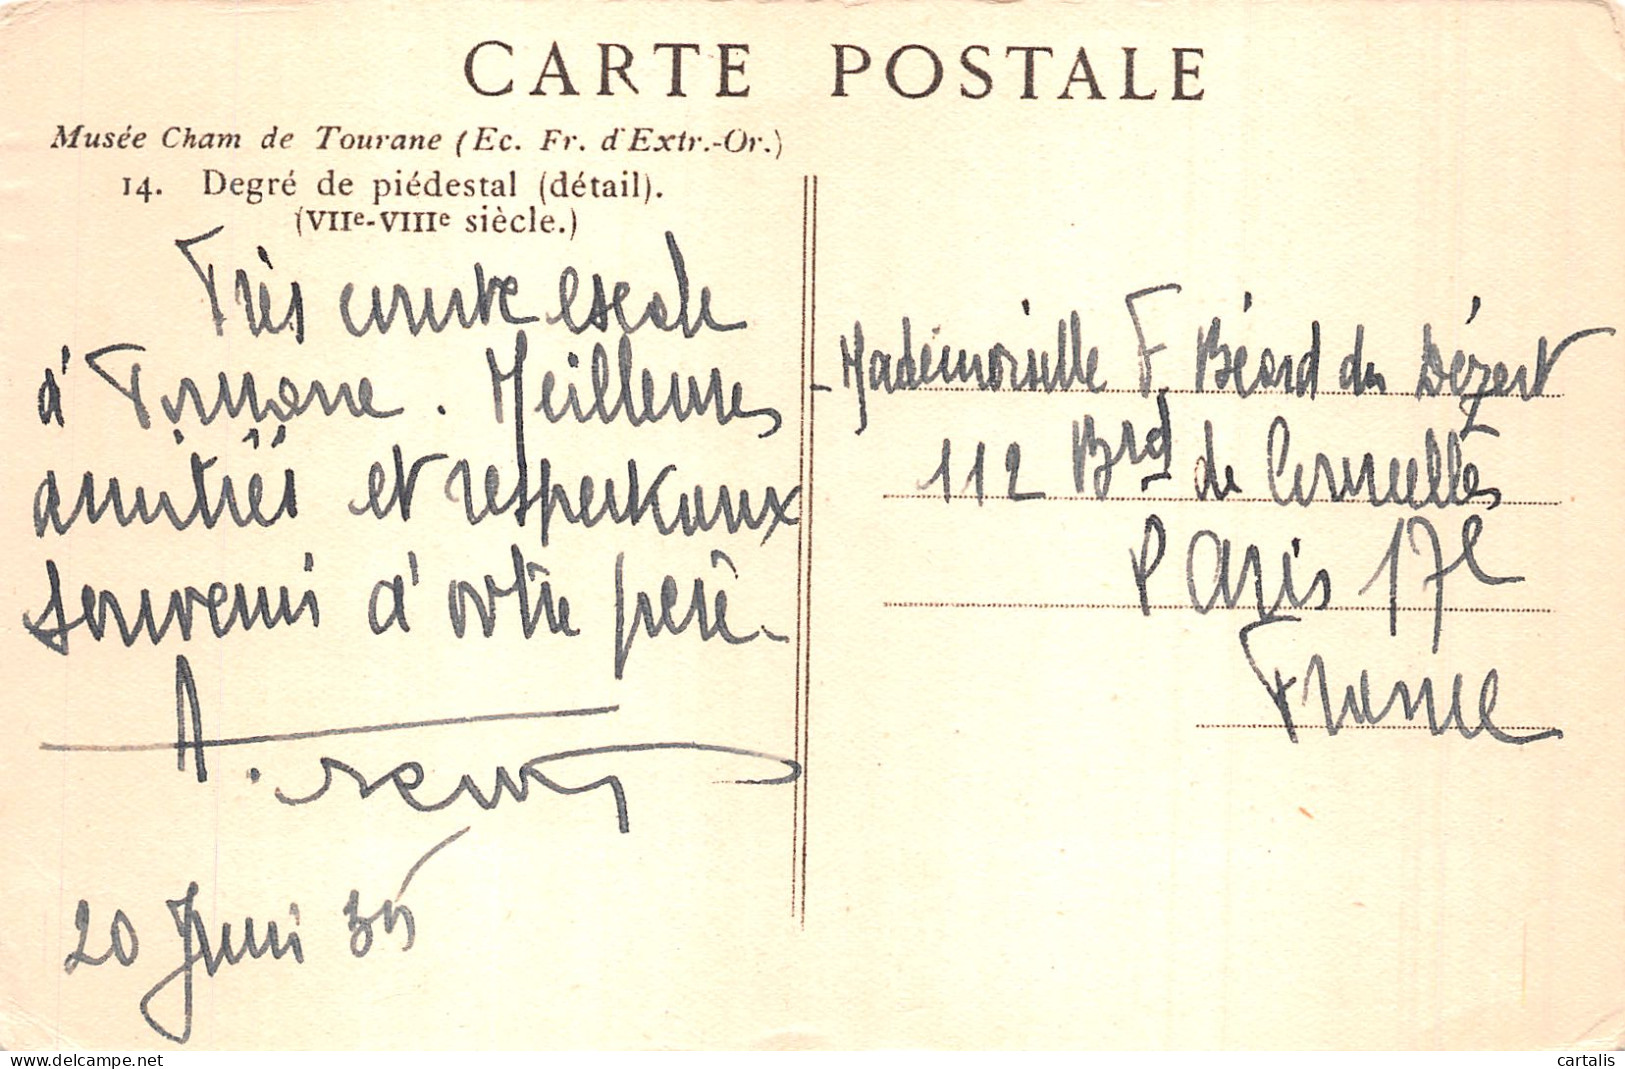 CARTE POSTALE
Musée Cham de Tourane (Ec. Fr. d'Extr.-Or.)
14. Degré de piédestal (détail).
(VIIe-VIIIe siècle.)
Très courte escale
à Tourane. Meilleures
amitiés et respectueux
souvenir à votre père.
A.
20 Juin 35
Mademoiselle F. Béard du Dézert
112 Brd de Courcelles
Paris 17e
France
cartalis
delcampe.net